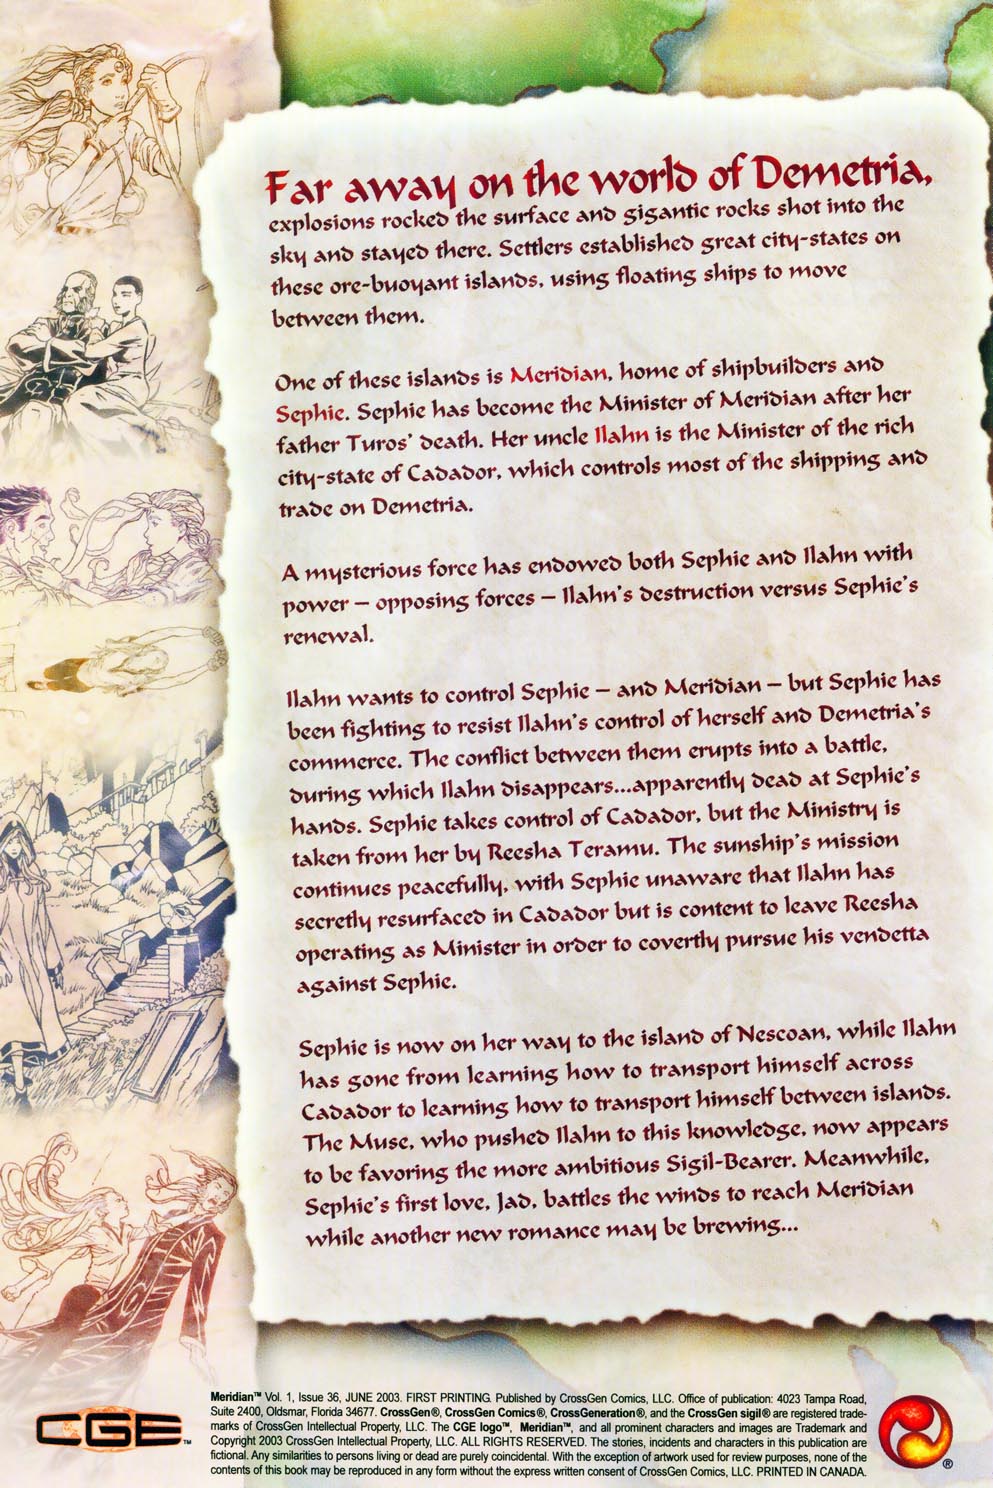 Far away on the world of Demetria,
explosions rocked the surface and gigantic rocks shot into the
sky and stayed there. Settlers established great city-states on
these ore-buoyant islands, using floating ships to move
between them.
One of these islands is Meridian, home of shipbuilders and
Sephie. Sephie has become the Minister of Meridian after her
father Turos' death. Her uncle Ilahn is the Minister of the rich
city-state of Cadador, which controls most of the shipping and
trade on Demetria.
A mysterious force has endowed both Sephie and Ilahn with
power – opposing forces – Ilahn's destruction versus Sephie's
renewal.
Ilahn wants to control Sephie – and Meridian – but Sephie has
been fighting to resist Ilahn's control of herself and Demetria's
commerce. The conflict between them erupts into a battle,
during which Ilahn disappears...apparently dead at Sephie's
hands. Sephie takes control of Cadador, but the Ministry is
taken from her by Reesha Teramu. The sunship's mission
continues peacefully, with Sephie unaware that Ilahn has
secretly resurfaced in Cadador but is content to leave Reesha
operating as Minister in order to covertly pursue his vendetta
against Sephie.
Sephie is now on her way to the island of Nescoan, while Ilahn
has gone from learning how to transport himself across
Cadador to learning how to transport himself between islands.
The Muse, who pushed Ilahn to this knowledge, now appears
to be favoring the more ambitious Sigil-Bearer. Meanwhile,
Sephie's first love, Jad, battles the winds to reach Meridian
while another new romance may be brewing...
CGE™
Meridian™ Vol. 1, Issue 36, JUNE 2003. FIRST PRINTING. Published by CrossGen Comics, LLC. Office of publication: 4023 Tampa Road,
Suite 2400, Oldsmar, Florida 34677. CrossGen®, CrossGen Comics®, CrossGeneration®, and the CrossGen sigil® are registered trade-
marks of CrossGen Intellectual Property, LLC. The CGE logo™, Meridian™, and all prominent characters and images are Trademark and
Copyright 2003 CrossGen Intellectual Property, LLC. ALL RIGHTS RESERVED. The stories, incidents and characters in this publication are
fictional. Any similarities to persons living or dead are purely coincidental. With the exception of artwork used for review purposes, none of the
contents of this book may be reproduced in any form without the express written consent of CrossGen Comics, LLC. PRINTED IN CANADA.
®